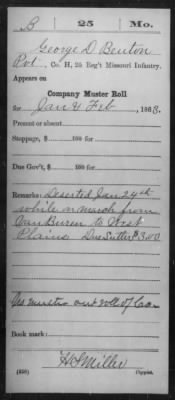 B 25 Mo.
George D Benton
Pvt, Co. H, 25 Reg't Missouri Infantry.
Appears on
Company Muster Roll
for Jan & Feb, 1863.
Present or absent
Stoppage, $ 100 for
Due Gov't, $ 100 for
Remarks: Deserted Jan 24th
while on march from
Van Buren to West
Plains Due Sutler $3.00
No muster out roll of Co on
Book mark:
H S Miller
(358) Copyist.